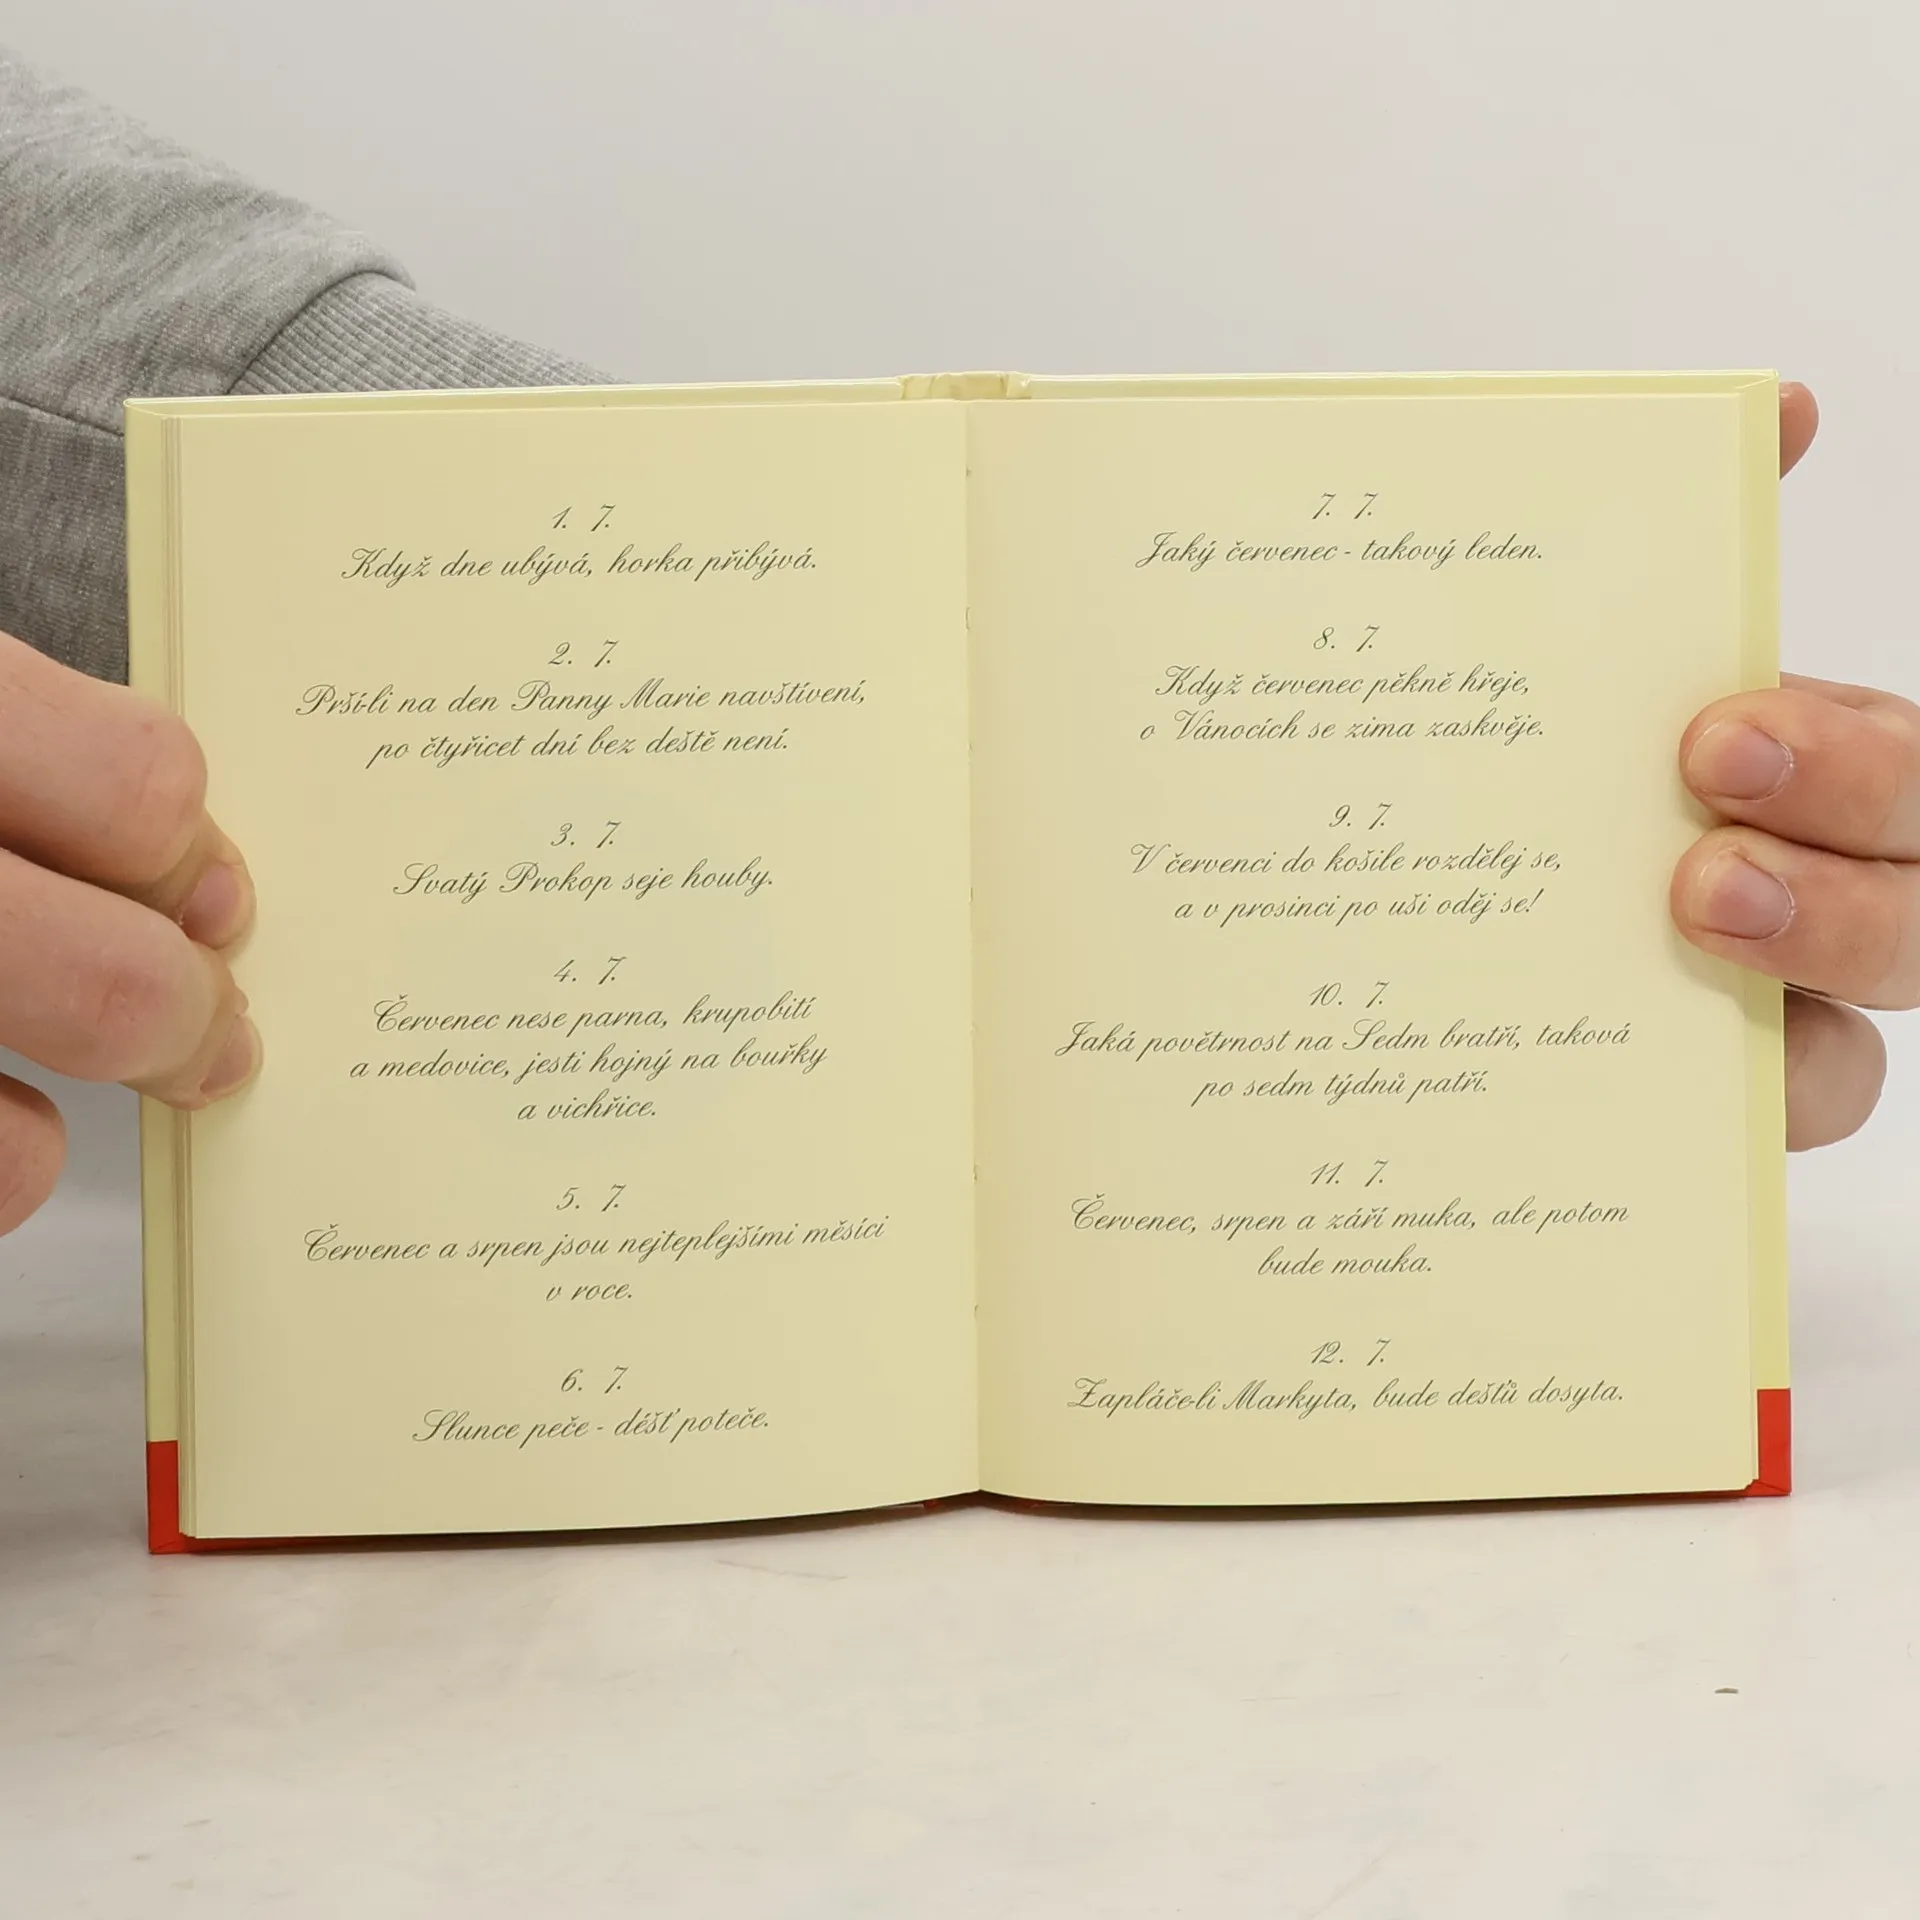 1. 7.
Když dne ubývá, horka přibývá.
2. 7.
Prší-li na den Panny Marie navštívení,
po čtyřicet dní bez deště není.
3. 7.
Svatý Prokop seje houby.
4. 7.
Červenec nese parna, krupobití
a medovice, jesti hojný na bouřky
a vichřice.
5. 7.
Červenec a srpen jsou nejteplejšími měsíci
v roce.
6. 7.
Slunce peče - déšť poteče.
7. 7.
Jaký červenec - takový leden.
8. 7.
Když červenec pěkně hřeje,
o Vánocích se zima zaskvěje.
9. 7.
V červenci do košile rozdělej se,
a v prosinci po uši oděj se!
10. 7.
Jaká povětrnost na Sedm bratří, taková
po sedm týdnů patří.
11. 7.
Červenec, srpen a září muka, ale potom
bude mouka.
12. 7.
Zapláče-li Markyta, bude dešťů dosyta.